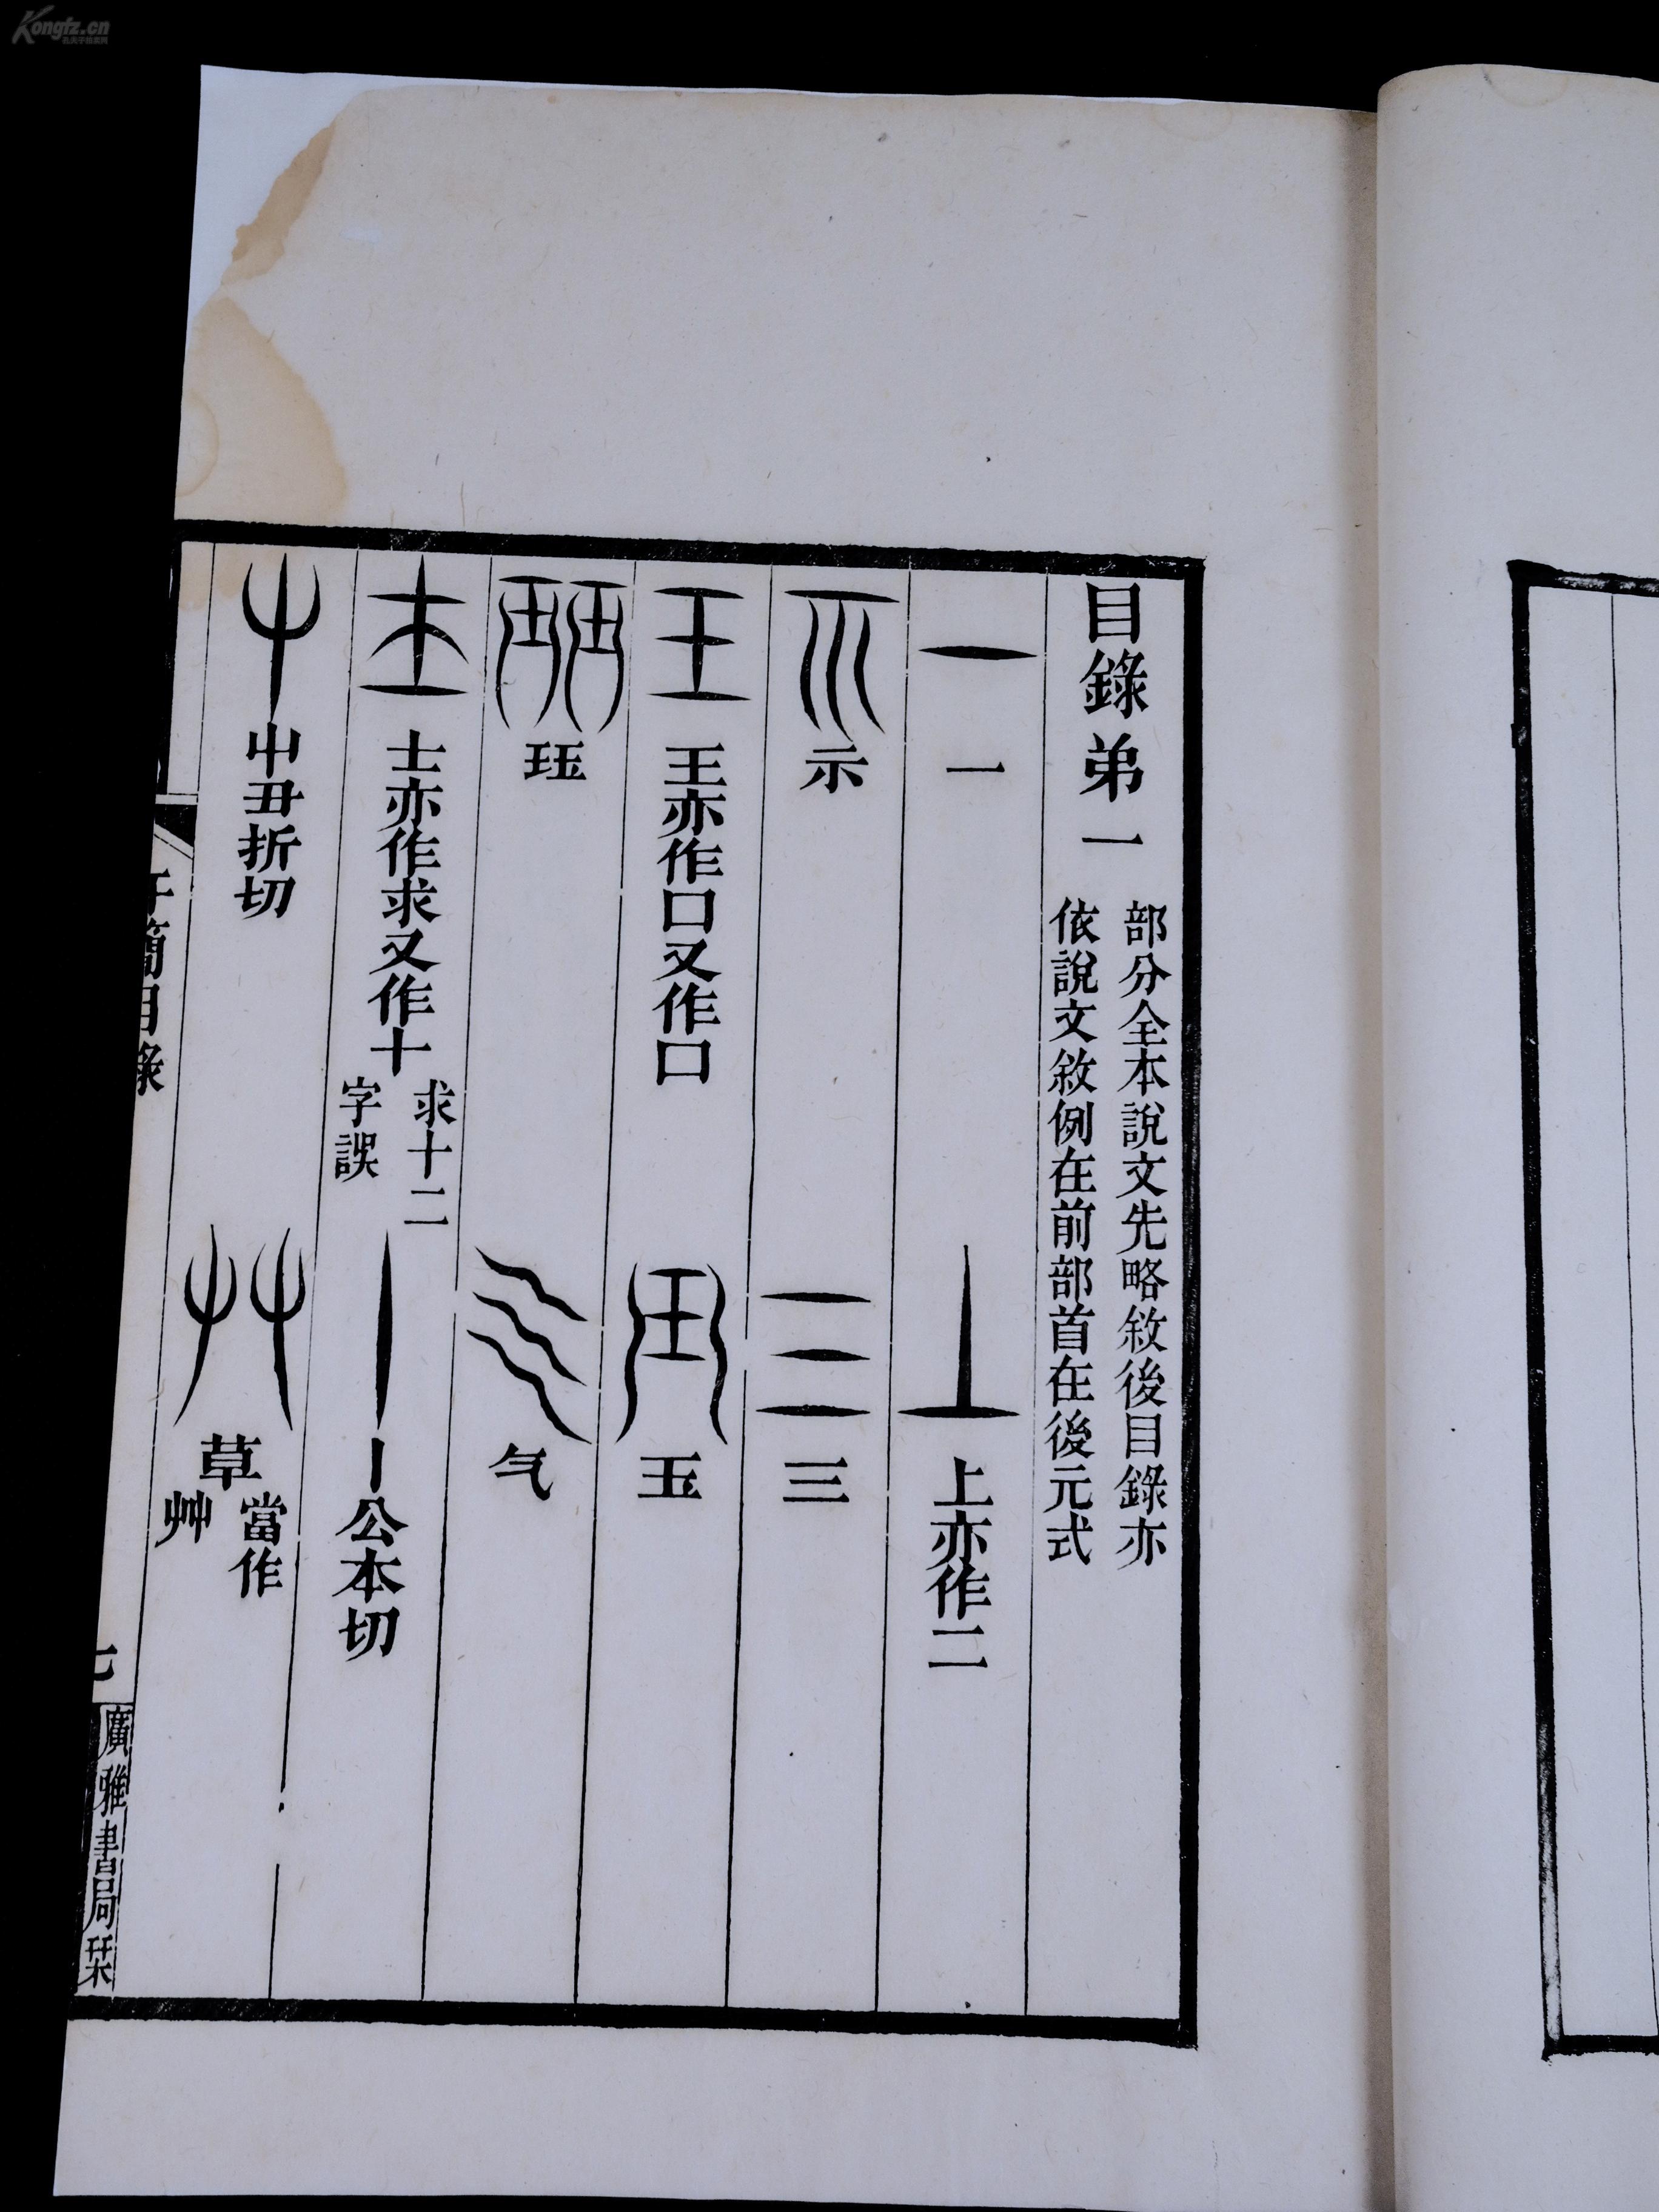 Kongfz.cn
孔夫子旧书网
目錄弟一
部分全本說文先略敘後目錄亦
依說文敘例在前部首在後元式
一
上亦作二
示
三
王亦作口又作口
玉
玨
气
士亦作求又作十
求十二
字誤
丨公本切
屮丑折切
草
當作
艸
汗簡目錄
七
廣雅書局栞